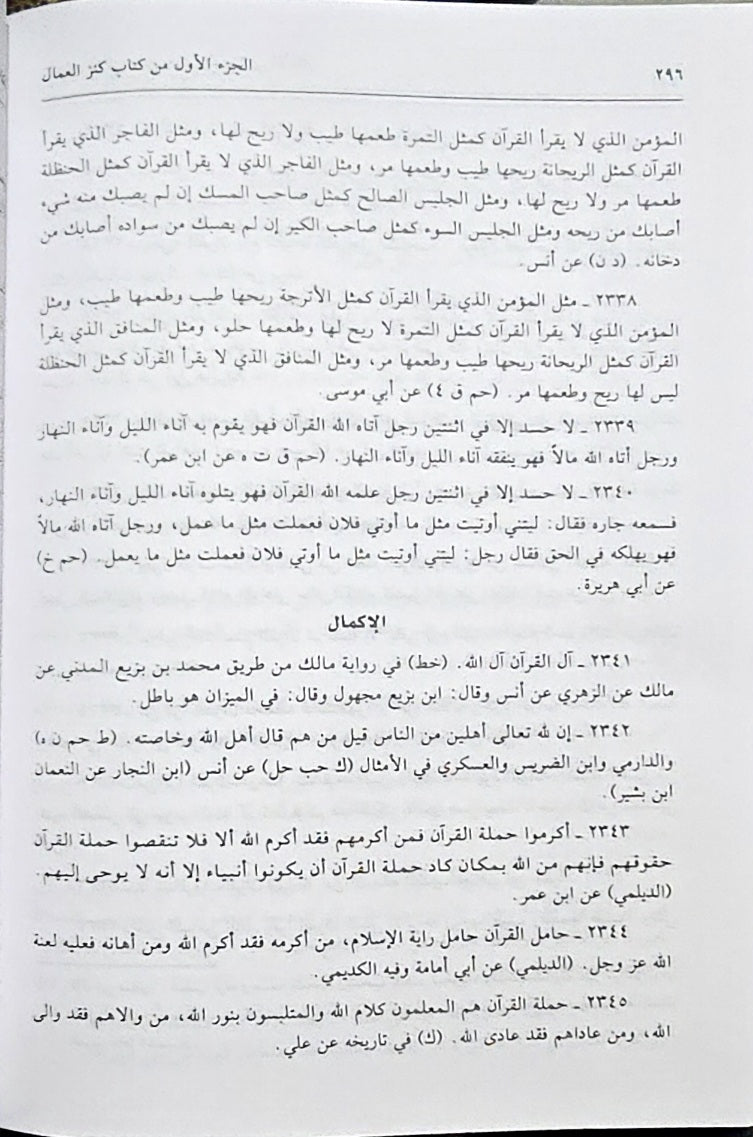 ٢٩٦ الجزء الأول من كتاب كنز العمال
المؤمن الذي لا يقرأ القرآن كمثل التمرة طعمها طيب ولا ريح لها، ومثل الفاجر الذي يقرأ
القرآن كمثل الريحانة ريحها طيب وطعمها مر، ومثل الفاجر الذي لا يقرأ القرآن كمثل الحنظلة
طعمها مر ولا ريح لها، ومثل الجليس الصالح كمثل صاحب المسك إن لم يصبك منه شيء
أصابك من ريحه ومثل الجليس السوء كمثل صاحب الكير إن لم يصبك من سواده أصابك من
دخانه. (د ن) عن أنس.
٢٣٣٨ ـ مثل المؤمن الذي يقرأ القرآن كمثل الأترجة ريحها طيب وطعمها طيب، ومثل
المؤمن الذي لا يقرأ القرآن كمثل التمرة لا ريح لها وطعمها حلو، ومثل المنافق الذي يقرأ
القرآن كمثل الريحانة ريحها طيب وطعمها مر، ومثل المنافق الذي لا يقرأ القرآن كمثل الحنظلة
ليس لها ريح وطعمها مر. (حم ق ٤) عن أبي موسى.
٢٣٣٩ ـ لا حسد إلا في اثنتين رجل آتاه الله القرآن فهو يقوم به آناء الليل وآناء النهار
ورجل أتاه الله مالاً فهو ينفقه آناء الليل وآناء النهار. (حم ق ت ه عن ابن عمر).
٢٣٤٠ ـ لا حسد إلا في اثنتين رجل علمه الله القرآن فهو يتلوه آناء الليل وآناء النهار،
فسمعه جاره فقال: ليتني أوتيت مثل ما أوتي فلان فعملت مثل ما عمل، ورجل آتاه الله مالاً
فهو يهلكه في الحق فقال رجل: ليتني أوتيت مثل ما أوتي فلان فعملت مثل ما يعمل. (حم خ)
عن أبي هريرة.
الإكمال
٢٣٤١ ـ آل القرآن آل الله. (خط) في رواية مالك من طريق محمد بن بزيع المدني عن
مالك عن الزهري عن أنس وقال: ابن بزيع مجهول وقال: في الميزان هو باطل.
٢٣٤٢ ـ إن لله تعالى أهلين من الناس قيل من هم قال أهل الله وخاصته. (ط حم ن ه)
والدارمي وابن الضريس والعسكري في الأمثال (ك حب حل) عن أنس (ابن النجار عن النعمان
ابن بشير).
٢٣٤٣ ـ أكرموا حملة القرآن فمن أكرمهم فقد أكرم الله ألا فلا تنقصوا حملة القرآن
حقوقهم فإنهم من الله بمكان كاد حملة القرآن أن يكونوا أنبياء إلا أنه لا يوحى إليهم.
(الديلمي) عن ابن عمر.
٢٣٤٤ ـ حامل القرآن حامل راية الإسلام، من أكرمه فقد أكرم الله ومن أهانه فعليه لعنة
الله عز وجل. (الديلمي) عن أبي أمامة وفيه الكديمي.
٢٣٤٥ ـ حملة القرآن هم المعلمون كلام الله والمتلبسون بنور الله، من والاهم فقد والى
الله، ومن عاداهم فقد عادى الله. (ك) في تاريخه عن علي.